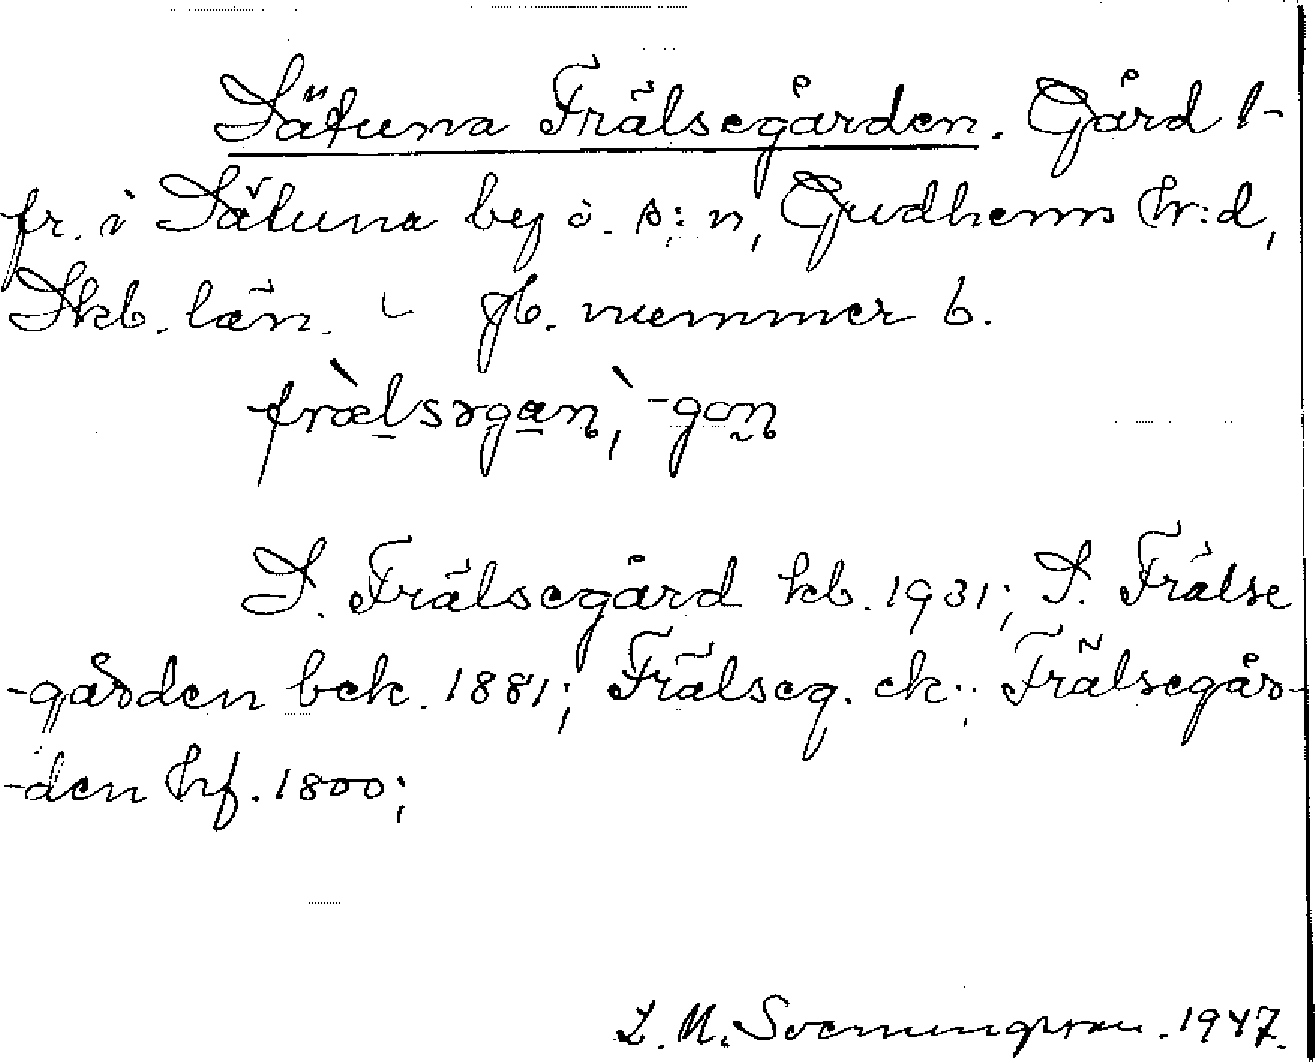 Sätuna Frälsegården. Gård 1
fr. i Sätuna by o. s:n, Gudhems hr:d,
Skb. län. - Jb. nummer 6.
fràlsəgan, -gon
S. Frälsegård kb. 1931; S. Frälse
-gården bek. 1881; Frälseg. ek.; Frälsegår-
-den hf. 1800;
L. M. Svenungsson. 1947.